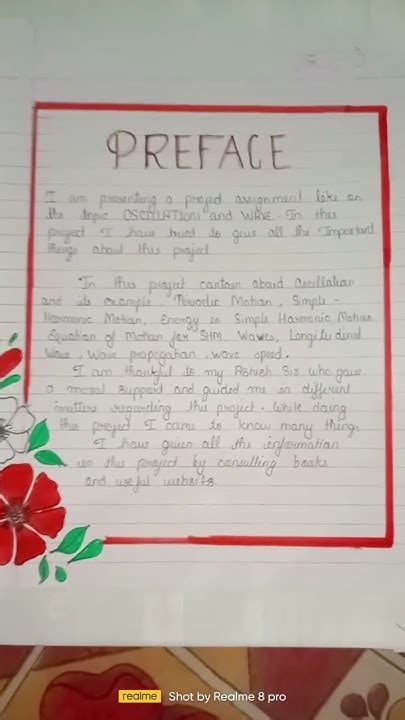 PREFACE
I am presenting a project assignment like on
the topic OSCILLATION and WAVE. In this
project I have tried to give all the Important
things about this project
In this project contain about Oscillation
and its example, Periodic Motion, Simple -
Harmonic Motion, Energy in Simple Harmonic Motion
Equation of Motion for SHM, Waves, Longitudinal
Wave, Wave propogation, wave speed.
I am thankful to my Ashish Sir who gave
a moral support and guided me in different
matters regarding this project. While doing
this project I came to know many things
I have given all the information
in this project by consulting books
and useful website.
realme Shot by Realme 8 pro